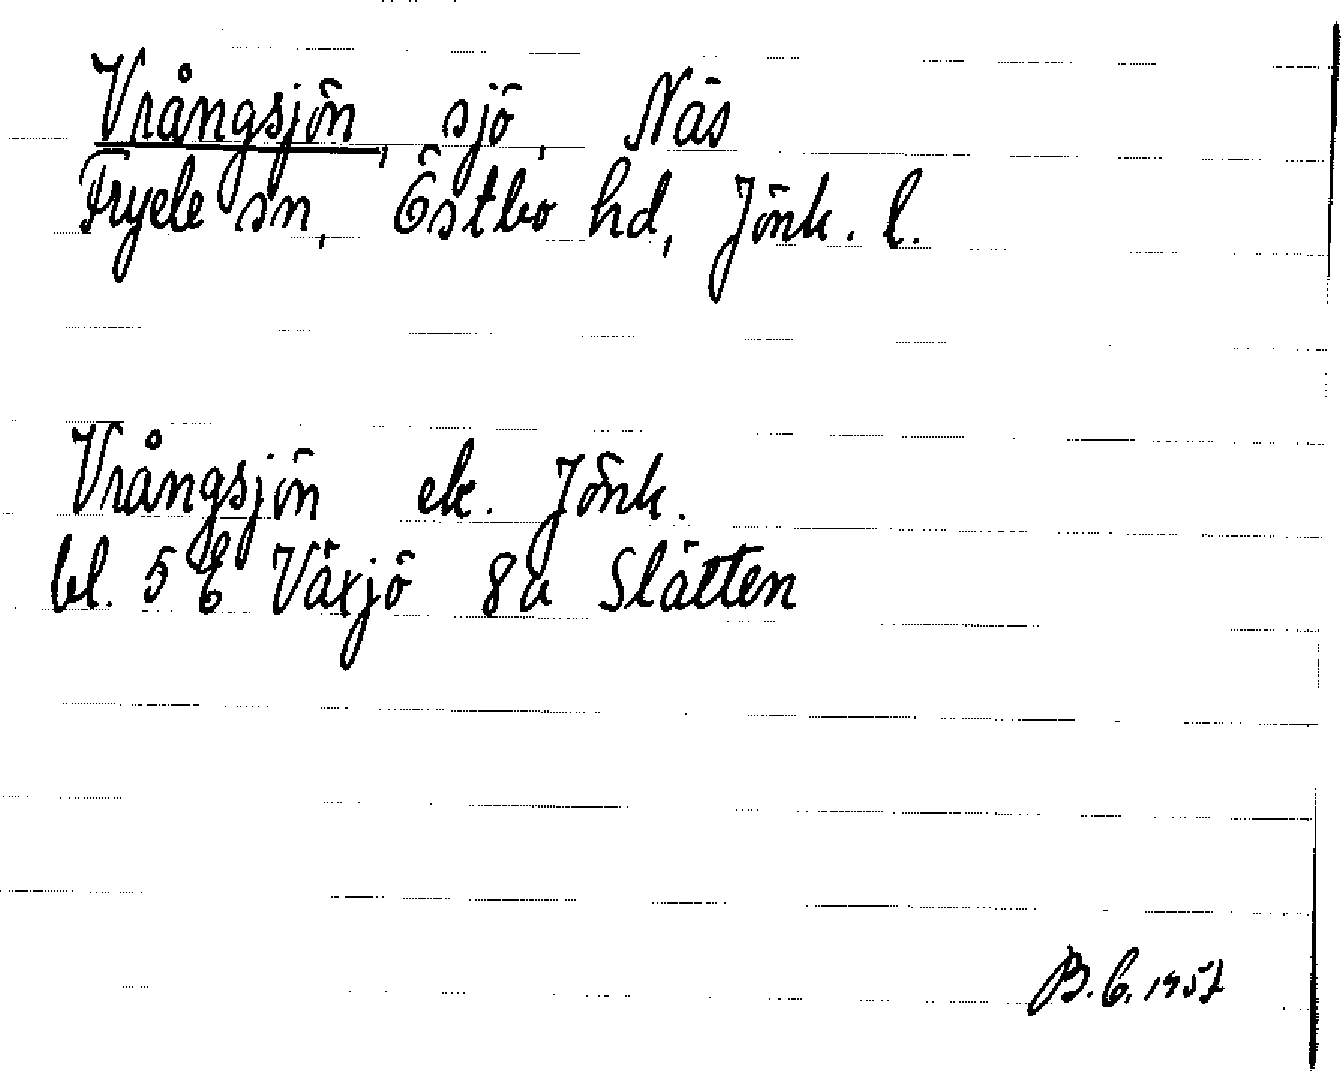 Vrångsjön, sjö, Näs
Fryele sn, Östbo hd, Jönk. l.
Vrångsjön ek. Jönk.
bl. 5 E Växjö 8a Slätten
B.C. 1957